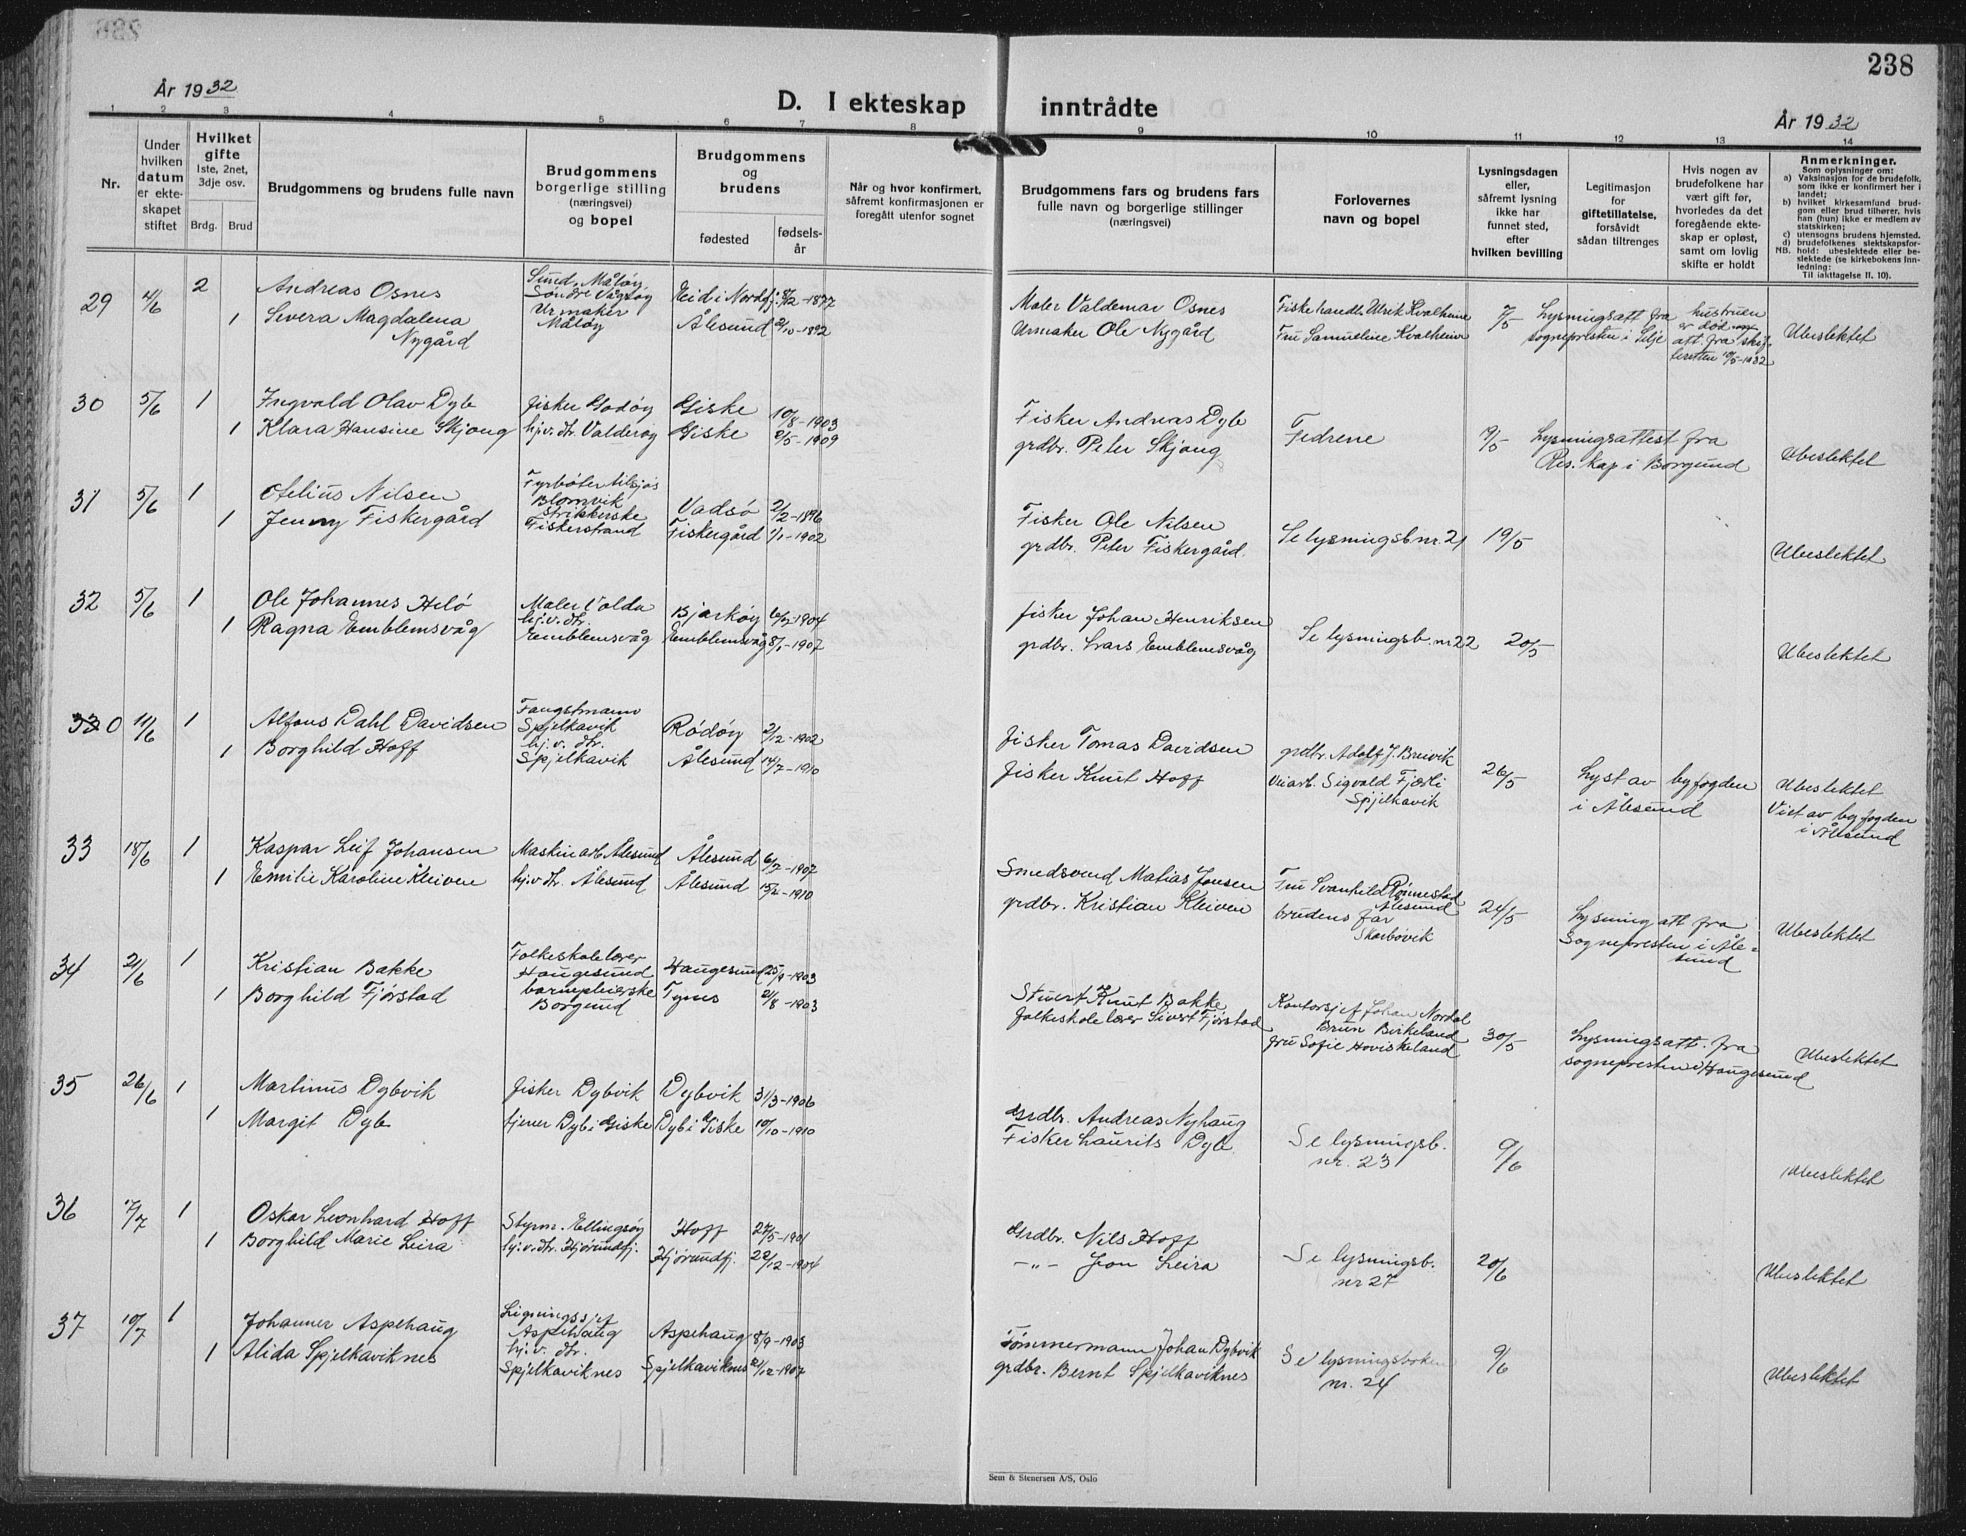 238
År 1932
D. I ekteskap inntrådte
År 1932
1 2 3 4 5 6 7 8 9 10 11 12 13 14
Nr.
Under hvilken datum er ekteskapet stiftet
Hvilket gifte
1ste, 2net, 3dje osv.
Brdg. Brud
Brudgommens og brudens fulle navn
Brudgommens borgerlige stilling (næringsvei) og bopel
Brudgommens og brudens
fødested
fødselsår
Når og hvor konfirmert, såfremt konfirmasjonen er foregått utenfor sognet
Brudgommens fars og brudens fars fulle navn og borgerlige stillinger (næringsvei)
Forlovernes navn og bopel
Lysningsdagen eller, såfremt lysning ikke har funnet sted, efter hvilken bevilling
Legitimasjon for giftetillatelse, forsåvidt sådan tiltrenges
Hvis nogen av brudefolkene har vært gift før, hvorledes da det foregående ekteskap er opløst, samt om lovlig skifte er holdt
Anmerkninger.
Som oplysninger om:
a) Vaksinasjon for de brudefolk, som ikke er konfirmert her i landet;
b) hvilket kirkesamfund brudgom eller brud tilhører, hvis han (hun) ikke er medlem av statskirken;
c) utensogns brudens hjemsted.
d) brudefolkenes slektskapsforhold: ubeslektede eller beslektede (se kirkebokens innledning:
NB.
Til iakttagelse II. 10).
29 4/6 2 Andreas Osnes Sund, Måløy, Søndre Vågsøy Eid i Nordfj. 8/2-1877 Maler Valdemar Osnes Fiskehandl. Ulrik Kvalheim 7/5 Lysningsatt fra hustruen Ubeslektet
1 Severa Magdalena Nygård Urmaker Måløy Ålesund 2/10-1892 Urmaker Ole Nygård Fru Samueline Kvalheim sognepresten i Selje er død att. fra skifteretten 10/5-1932
30 5/6 1 Ingvald Olav Dyb fisker Godøy Giske 10/8-1903 Fisker Andreas Dyb Fedrene 19/5 Lysningsattest fra Ubeslektet
1 Klara Hansine Skjong hj.v. dtr. Valderøy Giske 2/5-1909 grdbr. Peter Skjong Res. kap i Borgund
31 5/6 1 Ofelius Nilsen Fyrbøter tilsjøs Blomvik Vadsø 2/2-1896 Fisker Ole Nilsen Se lysningsb nr. 21 19/5 Ubeslektet
1 Jenny Fiskergård Strikkerske Fiskerstrand Fiskergård 1/1-1902 grdbr. Peter Fiskergård.
32 5/6 1 Ole Johannes Helø Maler Volda Bjarkøy 6/2-1904 fisker Johan Henriksen Se lysningsb. nr 22 20/5 Ubeslektet
1 Ragna Emblemsvåg hj.v. dtr. Emblemsvåg Emblemsvåg 8/1-1907 grdbr. Lars Emblemsvåg
0 11/6 1 Alfons Dahl Davidsen Fangstmann Spjelkavik Rødøy 2/12-1902 fisker Tomas Davidsen grdbr. Adolf J. Breivik 26/5 Lyst av byfogden Ubeslektet
1 Borghild Hoff hj.v. dtr. Spjelkavik Ålesund 14/7-1910 fisker Knut Hoff Veiarb. Sigvald Fjærli Spjelkavik i Ålesund Viet av byfogden i Ålesund
33 18/6 1 Kaspar Leif Johansen Maskinarb Ålesund Ålesund 6/7-1907 Smedsvend Matias Jonsen Fru Svanhild Rønnestad Ålesund 24/5 Lysning att fra Ubeslektet
1 Emilie Karoline Kleiven hj.v dtr. Ålesund Ålesund 15/2-1910 grdbr. Kristian Kleiven brudens far Skarbøvik Sognepresten i Ålesund
34 21/6 1 Kristian Bakke Folkeskolelærer Haugesund Haugesund 25/9-1903 Stuert Knut Bakke Kontorsjef Johan Nordal Brun Birkeland 30/5 Lysningsatt. fra Ubeslektet
1 Borghild Fjørstad barnepleierske Borgund 21/8-1903 folkeskolelærer Sivert Fjørstad fru Sofie sognepresten i Haugesund
35 26/6 1 Martinus Dybvik fisker Dybvik Dybvik 31/3-1906 Grdbr. Andreas Nyhaug Se lysningsb. nr. 23 9/6 Ubeslektet
1 Margit Dyb tjener Dyb i Giske Dyb i Giske 10/10-1910 Fisker Laurits Dyb.
36 17/7 1 Oskar Leonhard Hoff Styrm. Ellingsøy Hoff 27/5-1901 Grdbr. Nils Hoff Se lysningsb. nr 27 20/6 Ubeslektet
1 Borghild Marie Leira hj.v. dtr. Hjørundfj. Hjørundfj. 22/12-1904 -"- Jon Leira
37 10/7 1 Johannes Aspehaug Ligningssjef Aspehaug Aspehaug 8/9-1903 Tømmermann Johan Dybvik Se lysningsboken nr. 24 9/6 Ubeslektet
1 Alida Spjelkaviknes hj.v. dtr. Spjelkaviknes Spjelkaviknes 21/12-1907 grdbr. Bernt Spjelkaviknes
Sem & Stenersen A/S, Oslo